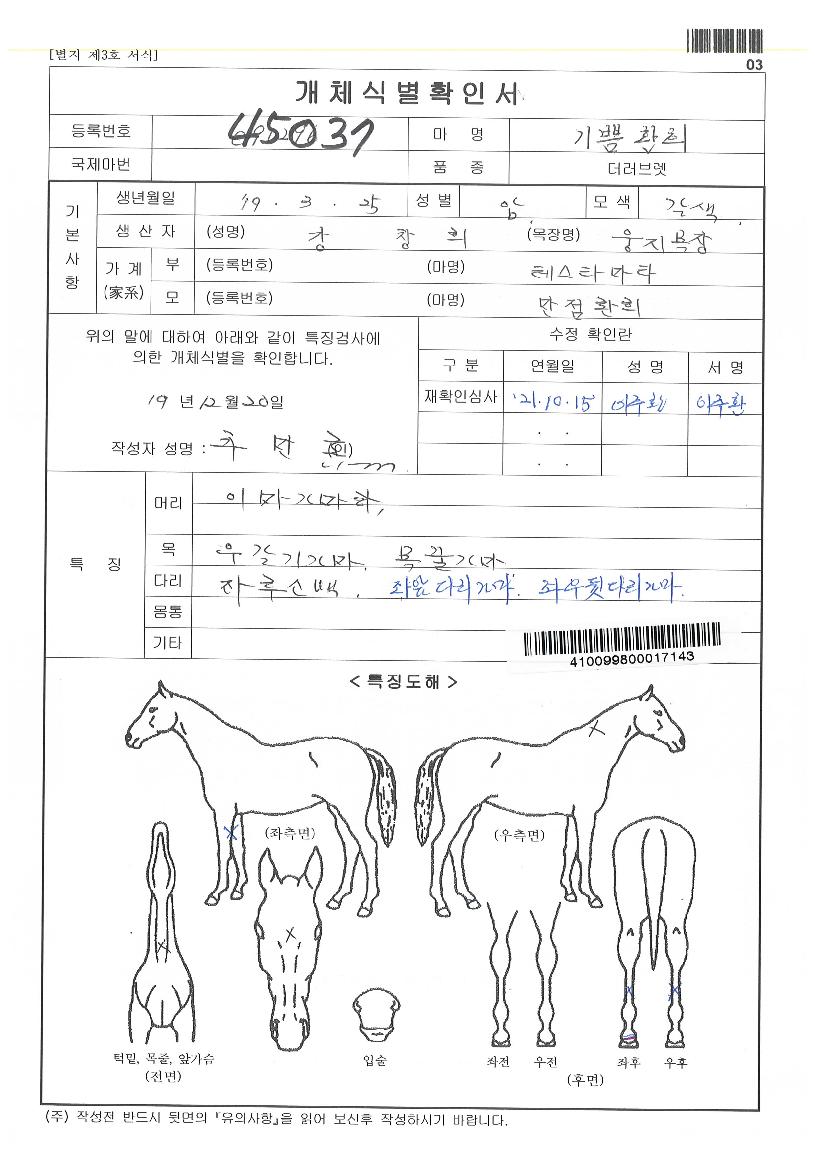 [별지 제3호 서식]
03
개체식별확인서
등록번호 45037 마 명 기쁨환희
국제마번 품 종 더러브렛
기본사항
생년월일 '19 . 3 . 25 성별 암 모색 갈색
생산자 (성명) 강창희 (목장명) 웅지목장
가계 (家系) 부 (등록번호) (마명) 테스타마타
모 (등록번호) (마명) 만점환희
위의 말에 대하여 아래와 같이 특징검사에
의한 개체식별을 확인합니다.
19 년 12 월 20 일
작성자 성명 : (인)
수정 확인란
구 분 연월일 성 명 서 명
재확인심사 '21.10.15 이주환 이주환
. .
. .
특 징
머리 이마가마하,
목 우갈기가마, 목끌가마
다리 좌후소백. 좌앞다리가마. 좌우뒷다리가마.
몸통
기타
410099800017143
< 특징도해 >
(좌측면) (우측면)
턱밑, 목줄, 앞가슴
(전면)
입술
좌전 우진 좌후 우후
(후면)
(주) 작성전 반드시 뒷면의 『유의사항』을 읽어 보신후 작성하시기 바랍니다.